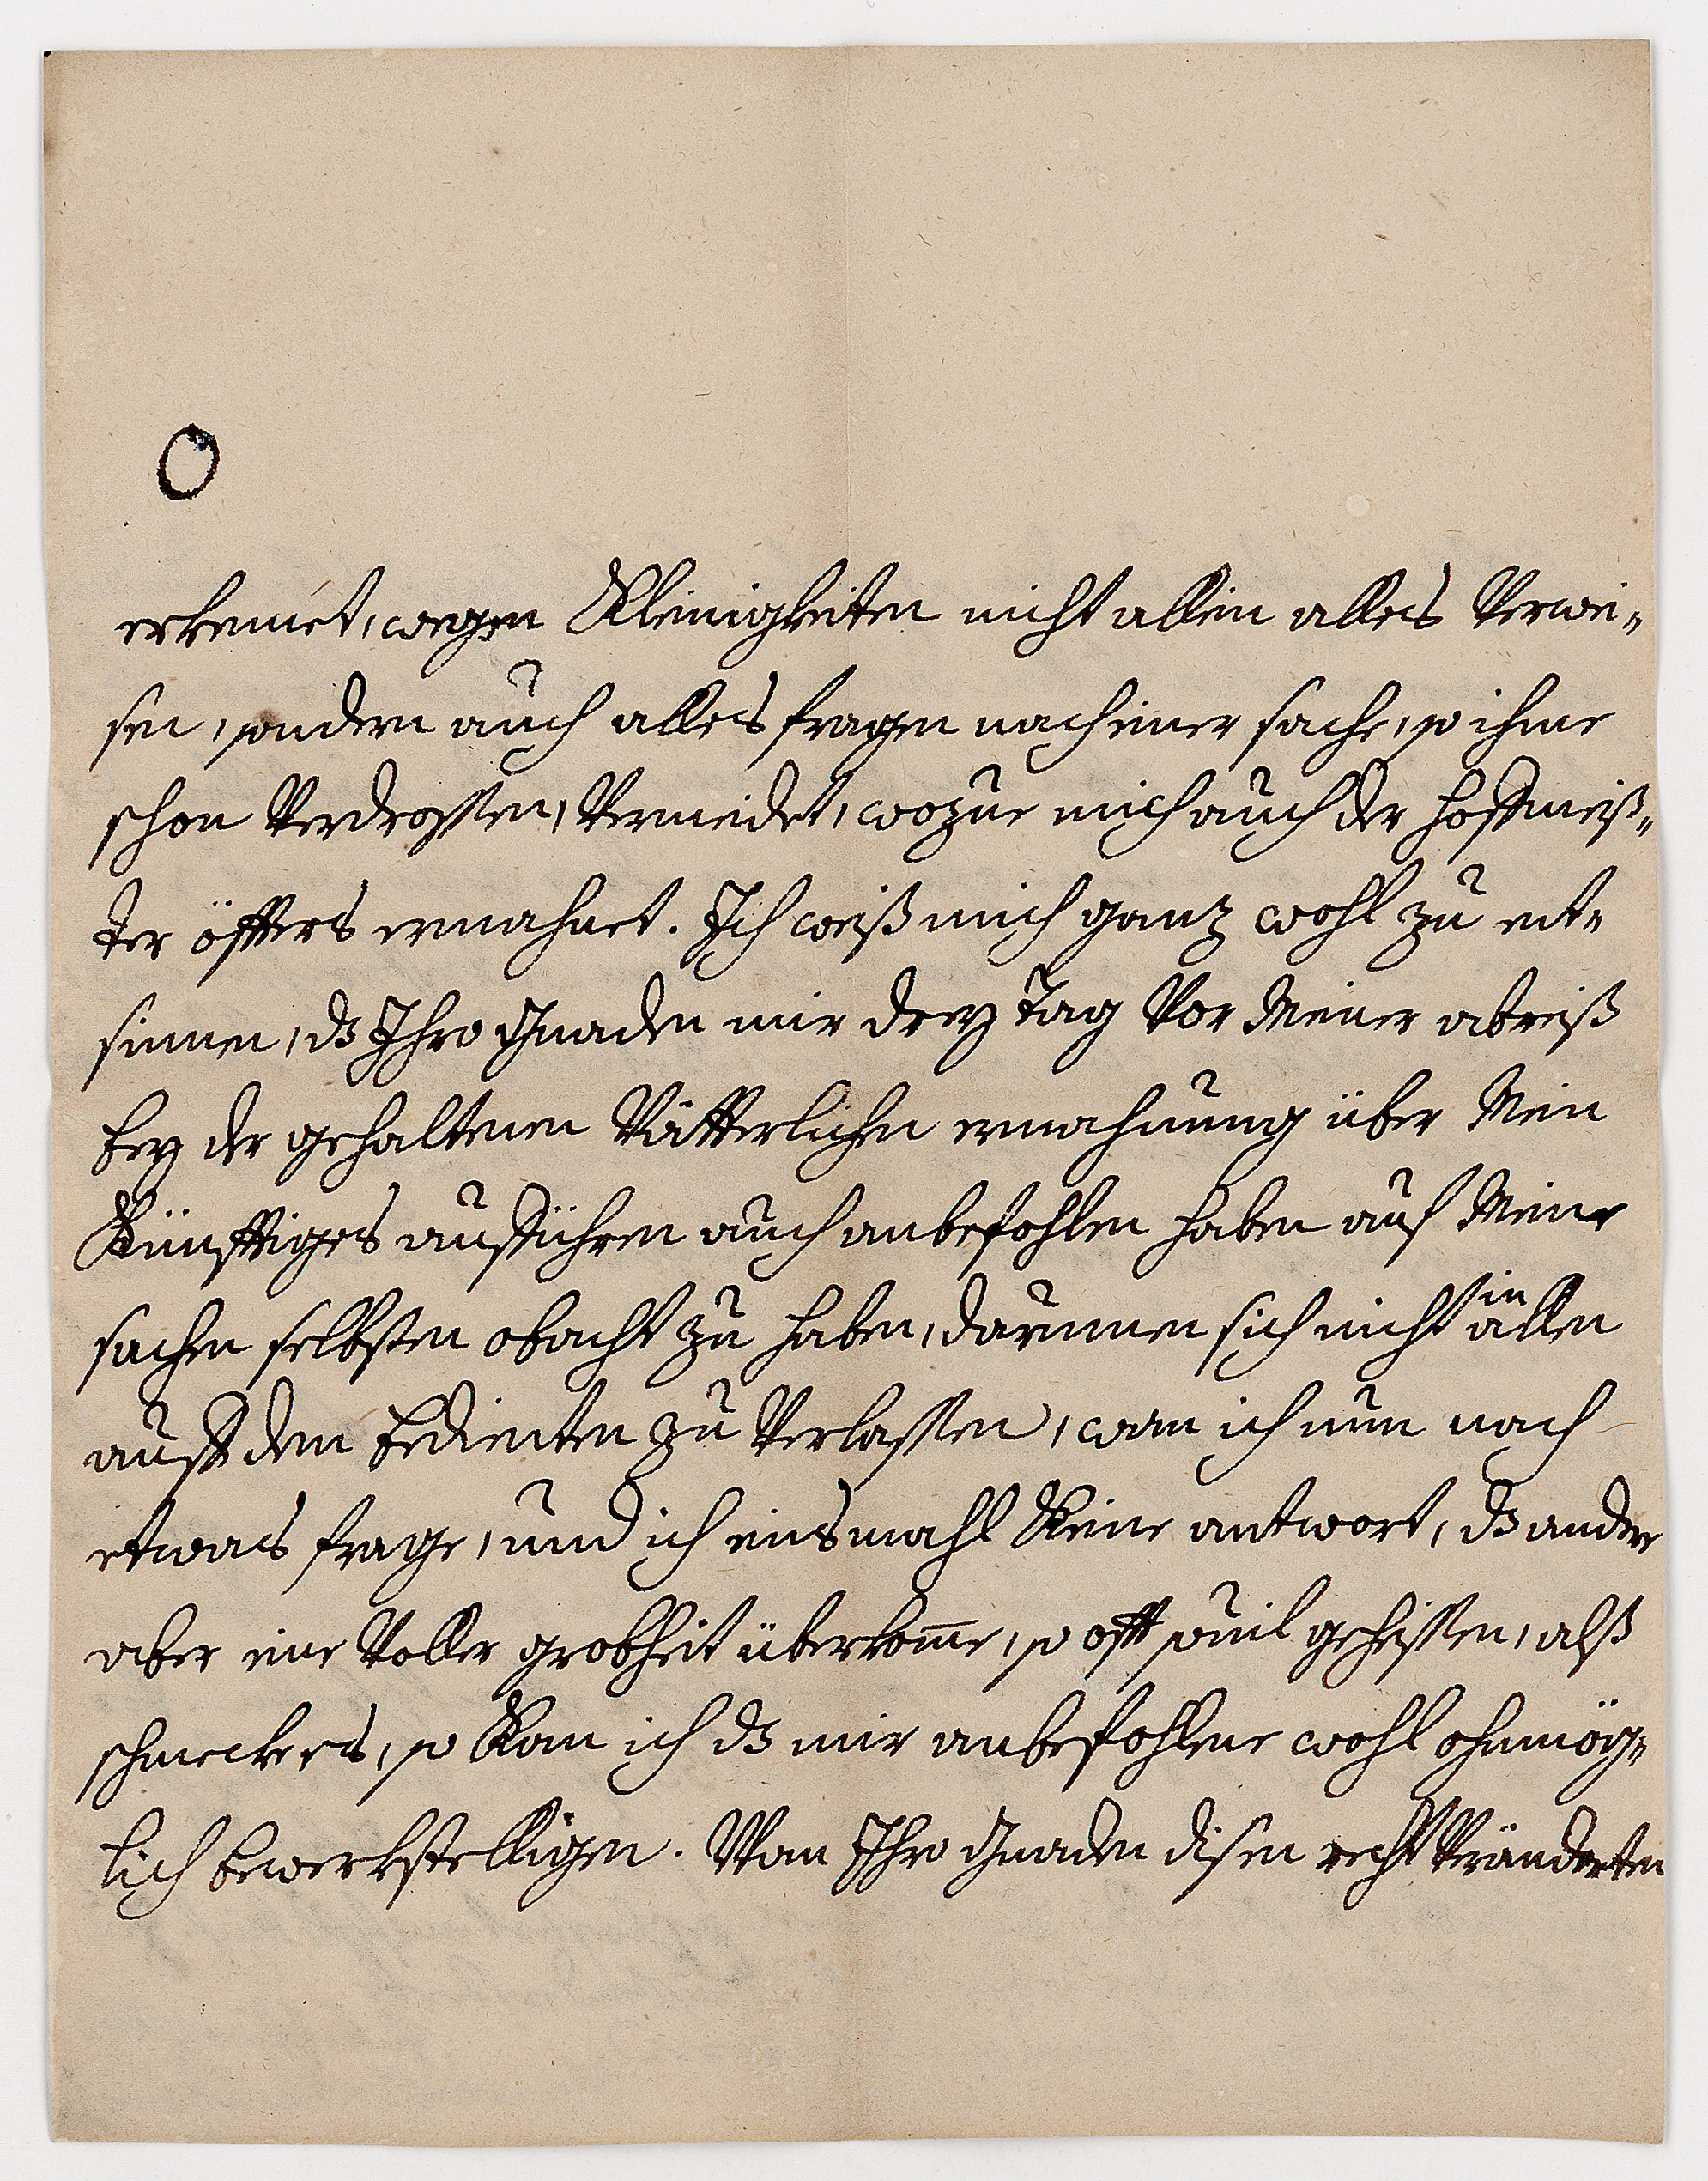 O
erkennet, wegen Kleinigkeiten nicht allein alles Verwei„
sen, sondern auch alles fragen nach einer sache, so ihme
schon Verdrossen, Vermeidet, wozue mich auch der hoffmeiß„
ter öffters ermahnet. Ich weiß mich ganz wohl zu ent„
sinnen, dß Ihro Gnaden mir drey Tag Vor Meiner abreiß
bey der gehaltenen Vätterlichen ermahnung über Mein
Künfftiges aufführen auch anbefohlen haben auf Meine
sachen selbsten obacht zu haben, darinnen sich nicht in allen
auff den bedienten zu Verlassen, wan ich nun nach
etwas frage, und ich einsmahl Keine antwort, dß andere
aber eine Voller grobheit überkom̅e, so offt souil geheissen, alß
schmeckers, so Kan ich dß mir anbefohlene wohl ohnmög„
lich bewerkstelligen. Wan Ihro Gnaden disen recht Veränderten